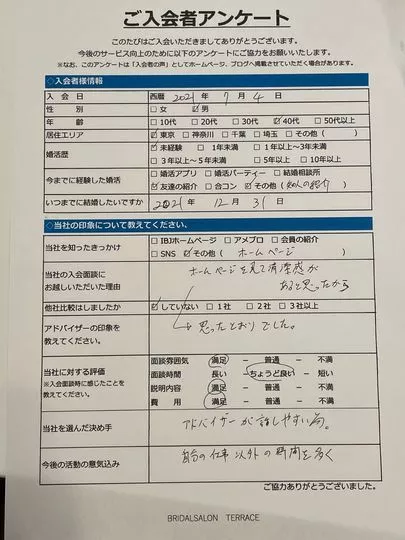 ご入会者アンケート
このたびはご入会いただきましてありがとうございます。
今後のサービス向上のために以下のアンケートにご協力をお願いいたします。
※なお、このアンケートは「入会者の声」としてホームページ、ブログへ掲載させていただく場合があります。
◆入会者様情報
入会日 西暦 2021年 7月 4日
性別 □女 ☑男
年齢 □10代 □20代 □30代 ☑40代 □50代以上
居住エリア ☑東京 □神奈川 □千葉 □埼玉 □その他( )
婚活歴 ☑未経験 □1年未満 □1年以上~3年未満
□3年以上~5年未満 □5年以上 □10年以上
今までに経験した婚活 □婚活アプリ □婚活パーティー □結婚相談所
☑友達の紹介 □合コン ☑その他(知人の紹介)
いつまでに結婚したいですか 2021年 12月 31日
◆当社の印象について教えてください。
当社を知ったきっかけ □IBJホームページ □アメブロ □会員の紹介
□SNS ☑その他( ホームページ )
当社の入会面談に
お越しいただいた理由
ホームページを見て清潔感が
あると思ったから
他社比較はしましたか ☑していない □1社 □2社 □3社以上
アドバイザーの印象を
教えてください。
↳思ったとおりでした。
当社に対する評価
※入会面談時に感じたことを
教えてください。
面談雰囲気 満足 − 普通 − 不満
面談時間 長い − ちょうど良い − 短い
説明内容 満足 − 普通 − 不満
費用 満足 − 普通 − 不満
当社を選んだ決め手 アドバイザーが話しやすい為。
今後の活動の意気込み 自分の仕事以外の時間を多く
ご協力ありがとうございました。
BRIDALSALON TERRACE